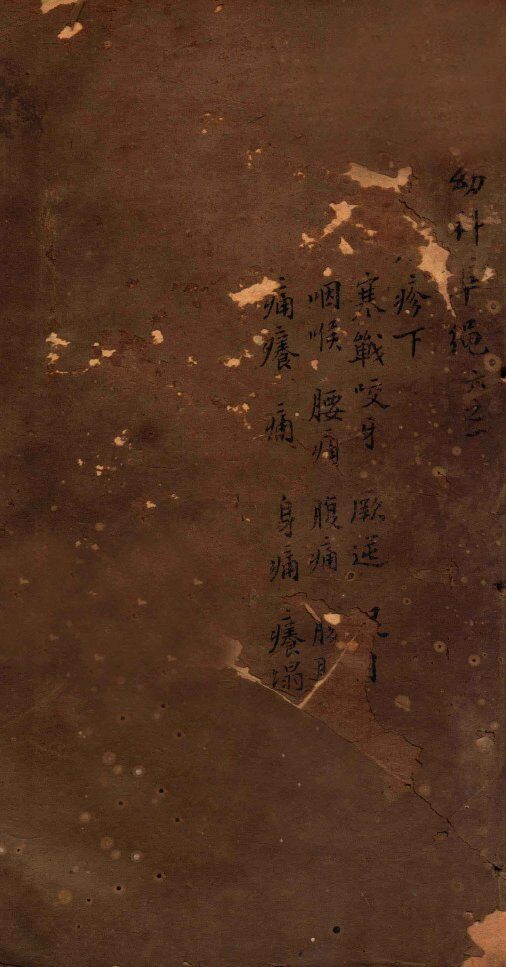 幼科準绳六之一
疹下
寒戰咬牙 厥逆
咽喉 腰痛 腹痛
痛癢 痛 身痛 癢塌